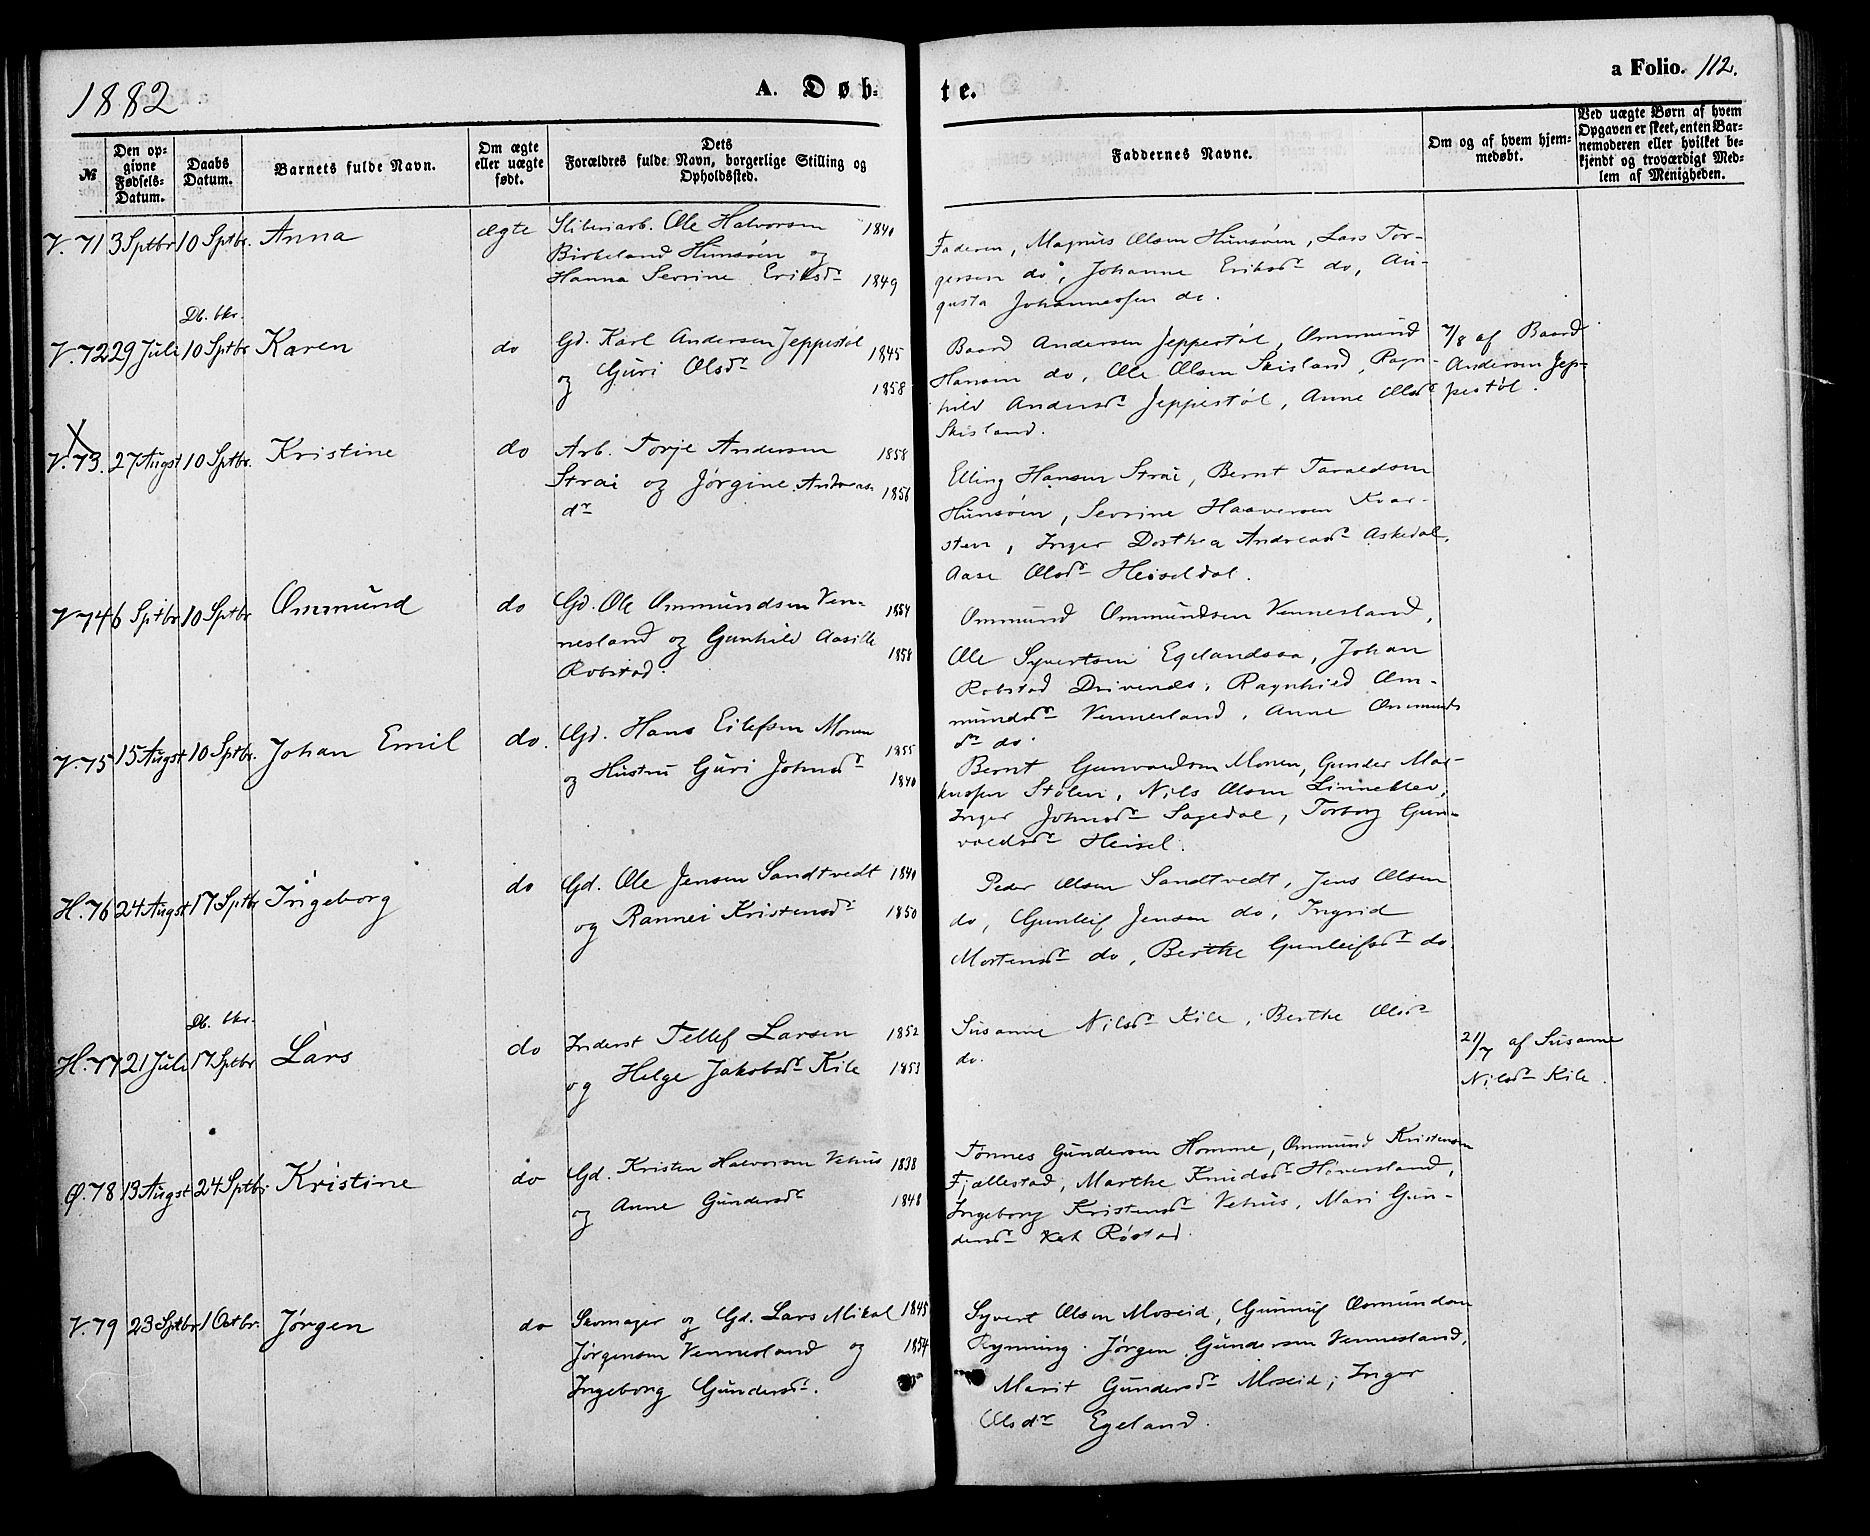 1882
A. Døb-
te.
a Folio. 112.
№
Den op-
givne
Fødsels-
Datum.
Daabs
Datum.
Barnets fulde Navn.
Om ægte
eller uægte
født.
Dets
Forældres fulde Navn, borgerlige Stilling og
Opholdssted.
Faddernes Navne.
Om og af hvem hjem-
medøbt.
Ved uægte Børn af hvem
Opgaven er skeet, enten Bar-
nemoderen eller hvilket be-
kjendt og troværdigt Med-
lem af Menigheden.
V. 71 3 Sptbr 10 Sptbr. Anna ægte Sliberiarb. Ole Halvorsen 1840
Birkeland Hunsøen og
Hanna Sevrine Eriksdr 1849
Faderen, Magnus Olsen Hunsøen, Lars Tor-
gersen do, Johanne Eriksdr do, Au-
gusta Johannessen do.
Db. bkr.
V. 72 29 Juli 10 Sptbr Karen do Gd. Karl Andersen Jeppestøl 1845
og Guri Olsdr 1858
Baard Andersen Jeppestøl, Ommund
Hansen do, Ole Olsen Skisland, Ragn-
hild Andersdr Jeppestøl, Anne Olsdr
Skisland.
7/8 af Baard
Andersen Jep-
pestøl.
V. 73. 27 Augst 10 Sptbr. Kristine do Arb. Torje Andersen 1858
Strai og Jørgine Andreas- 1856
dr
Elling Hansen Strai, Bernt Taraldsen
Hunsøen, Sevrine Haaversen Kvar-
sten, Inger Dorthea Andreasdr Askedal,
Aase Olsdr Heiseldal.
V. 74 6 Sptbr 10 Sptbr Ommund do Gd. Ole Ommundsen Ven- 1854
nesland og Gunhild Aasille 1858
Robstad.
Ommund Ommundsen Vennesland,
Ole Syvertsen Egelandsaa, Johan
Robstad Drivenes, Ragnhild Om-
mundsdr Vennesland, Anne Ommunds
dr do.
V. 75 15 Augst 10 Sptbr. Johan Emil do. Gd. Hans Eilefsen Monen 1855
og Hustru Guri Johnsdr 1840
Bernt Gunvaldsen Monen, Gunder Mar-
kussen Stølen, Nils Olsen
Inger Johnsdr Sagedal, Torborg Gun-
valdsdr Heisel.
H. 76 24 Augst 17 Sptbr Ingeborg do Gd. Ole Jensen Sandtvedt 1840
og Rannei Kristensdr 1850
Peder Olsen Sandtvedt, Jens Olsen
do, Gunleif Jensen do, Ingrid
Mortensdr do, Berthe Gunleifsdr do
Db. bkr.
H. 77 21 Juli 17 Sptbr Lars do Inderst Tellef Larsen 1852
og Helge Jakobsdr Kile 1853
Susanne Nilsdr Kile, Berthe Olsdr
do.
21/7 af Susanne
Nilsdr Kile.
Ø. 78 13 Augst 24 Sptbr Kristine do Gd. Kristen Halvorsen Vehus 1838
og Anne Gundersdr 1848
Tønnes Gundersen Homme, Ommund Kristensen
Fjællestad, Marthe Knudsdr Haversland,
Ingeborg Kristensdr Vehus, Mari Gun-
dersdr Røstad.
V. 79 23 Sptbr 1 Octbr. Jørgen do Skomager og Gd. Lars Mikal 1845
Jørgensen Vennesland og 1854
Ingeborg Gundersdr.
Syvert Olsen Moseid, Gunnuf Osmundsen
Rynning. Jørgen Gundersen Vennesland,
Marit Gundersdr Moseid, Inger
Olsdr Egeland.